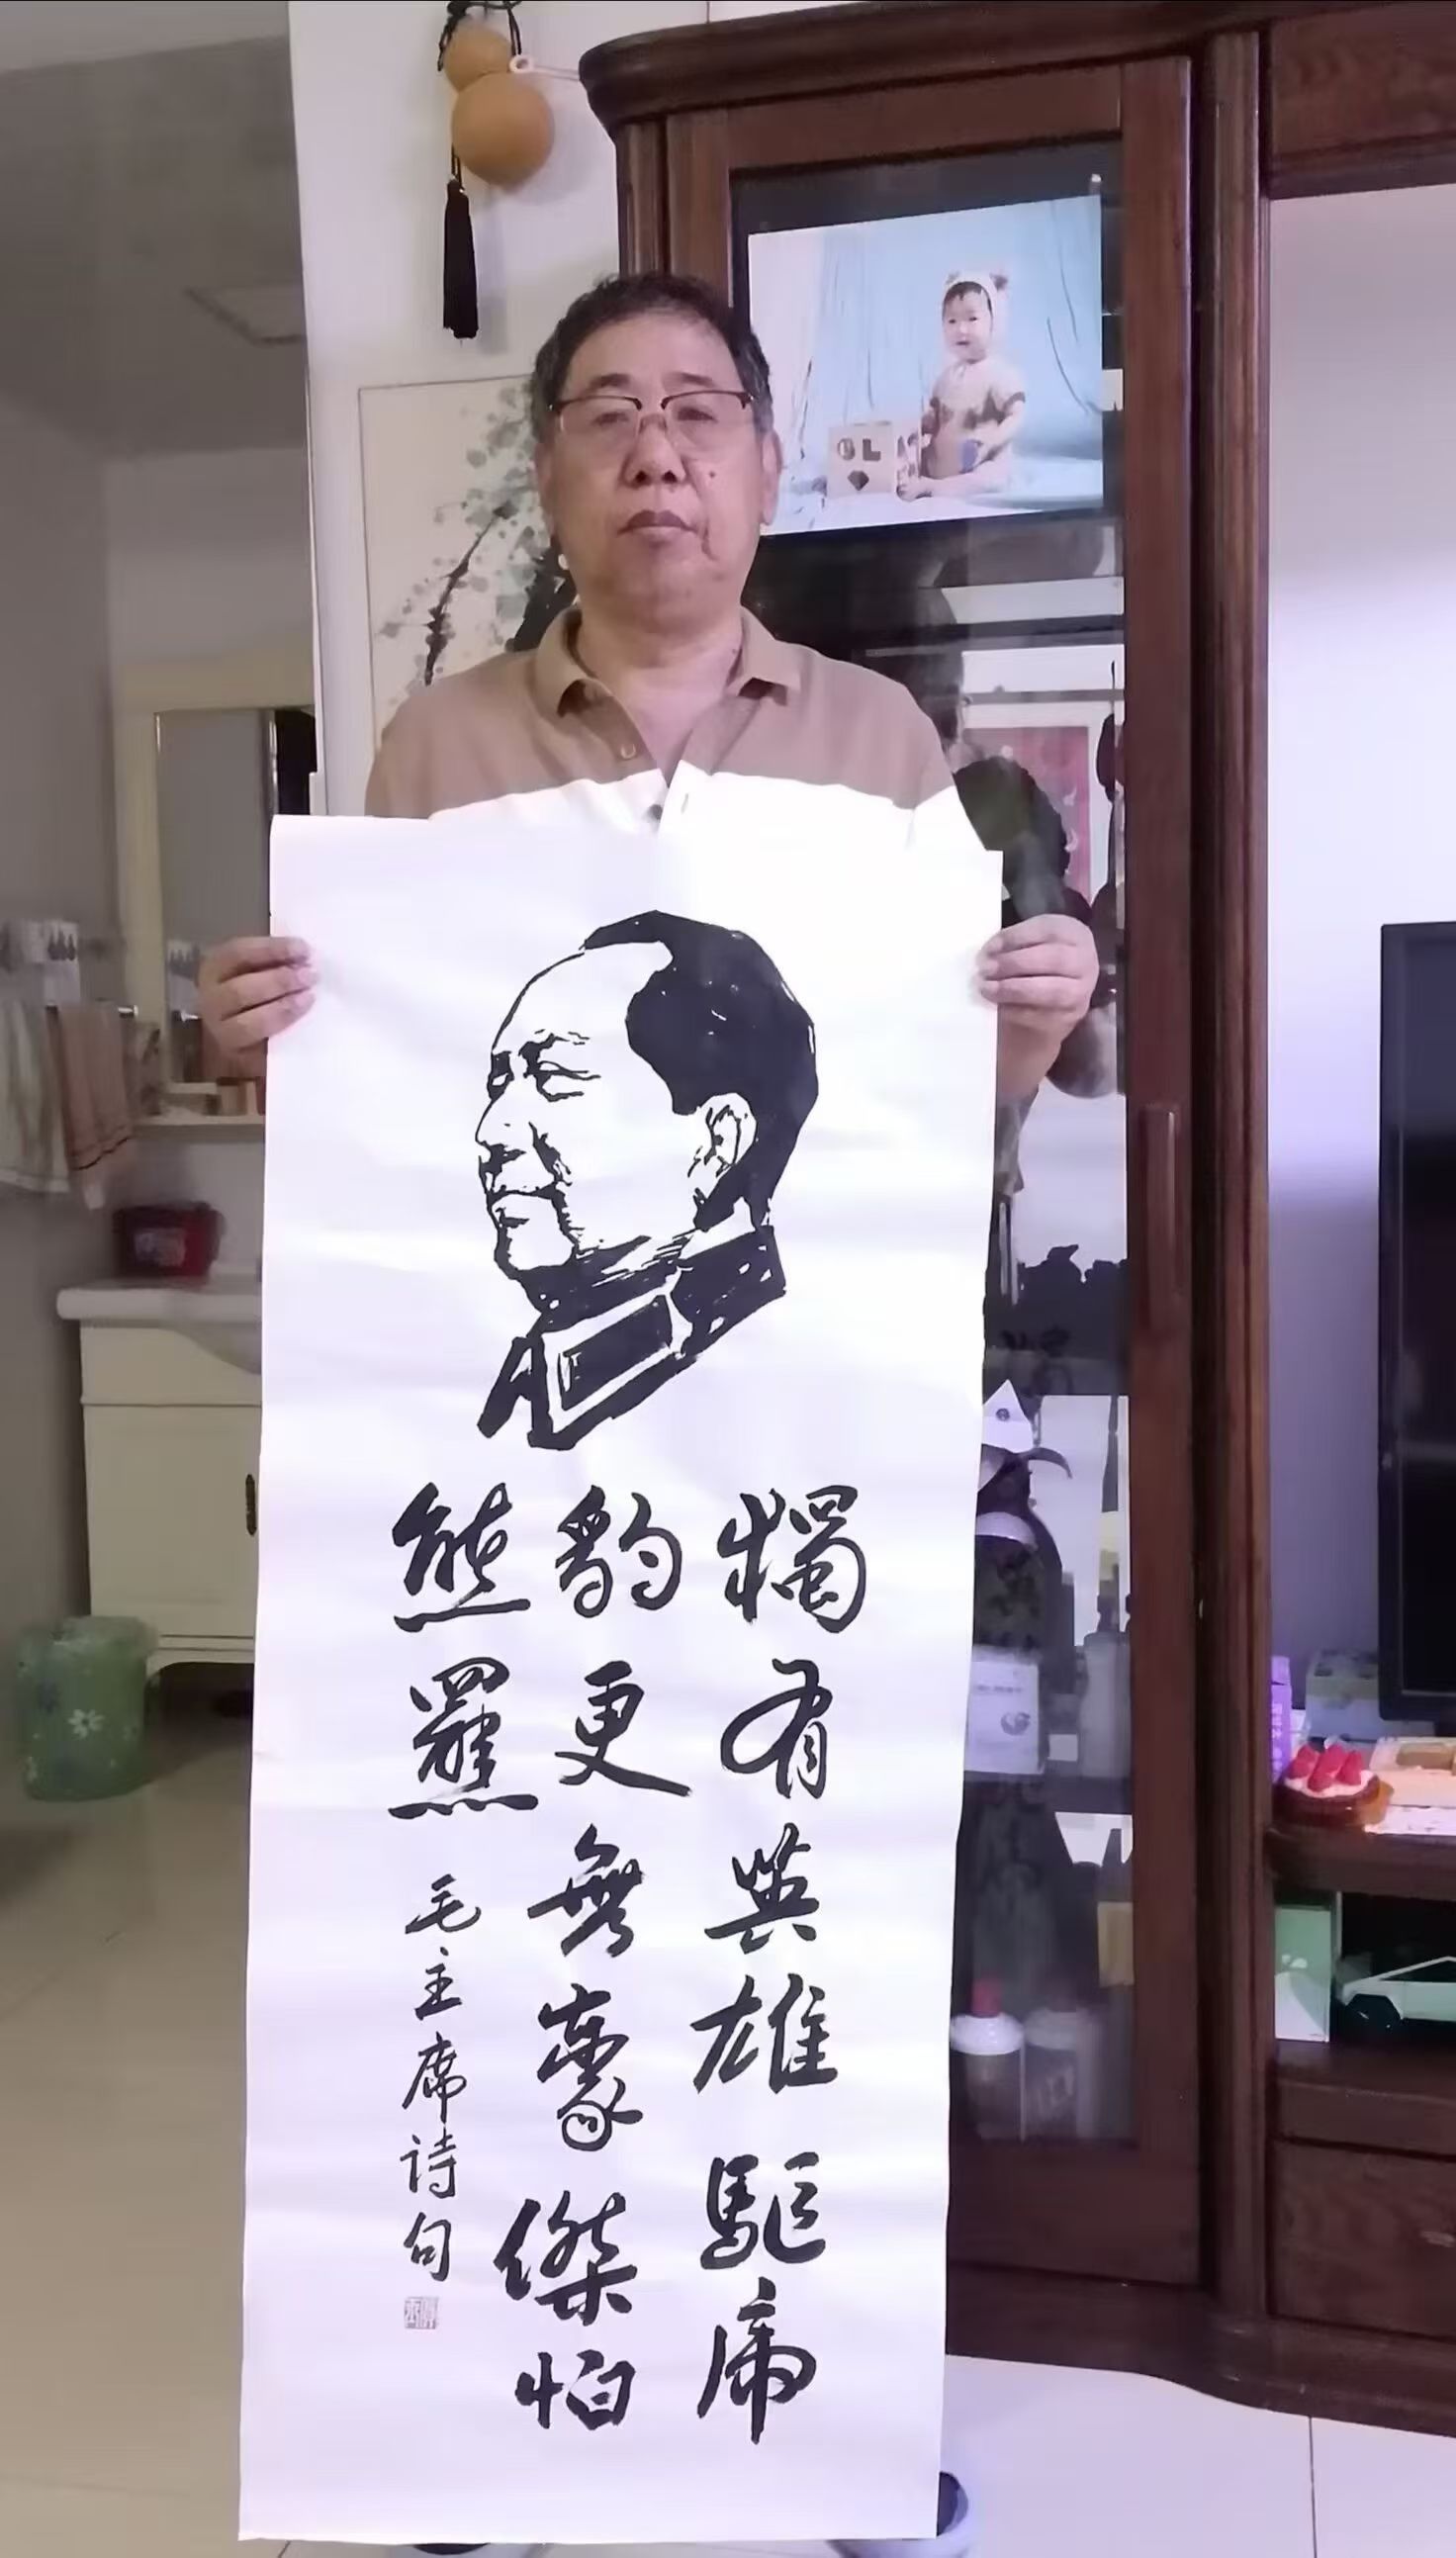 獨有英雄驅虎
豹更無豪傑怕
熊羆
毛主席诗句